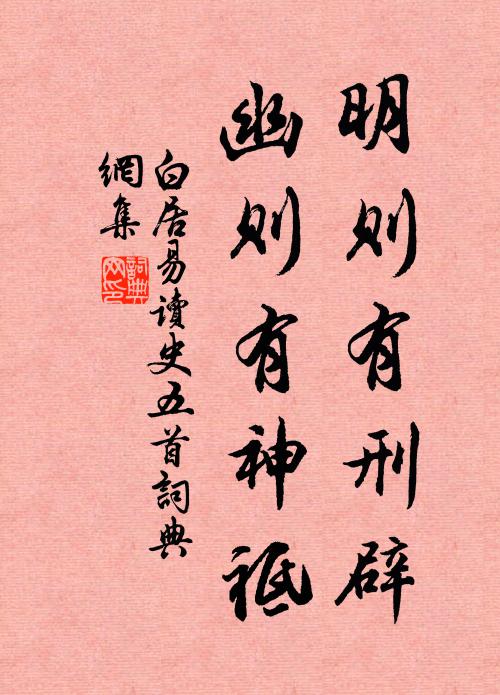 明则有刑辟
幽则有神祇
白居易讀史五首詞典
網集
詞典
网印